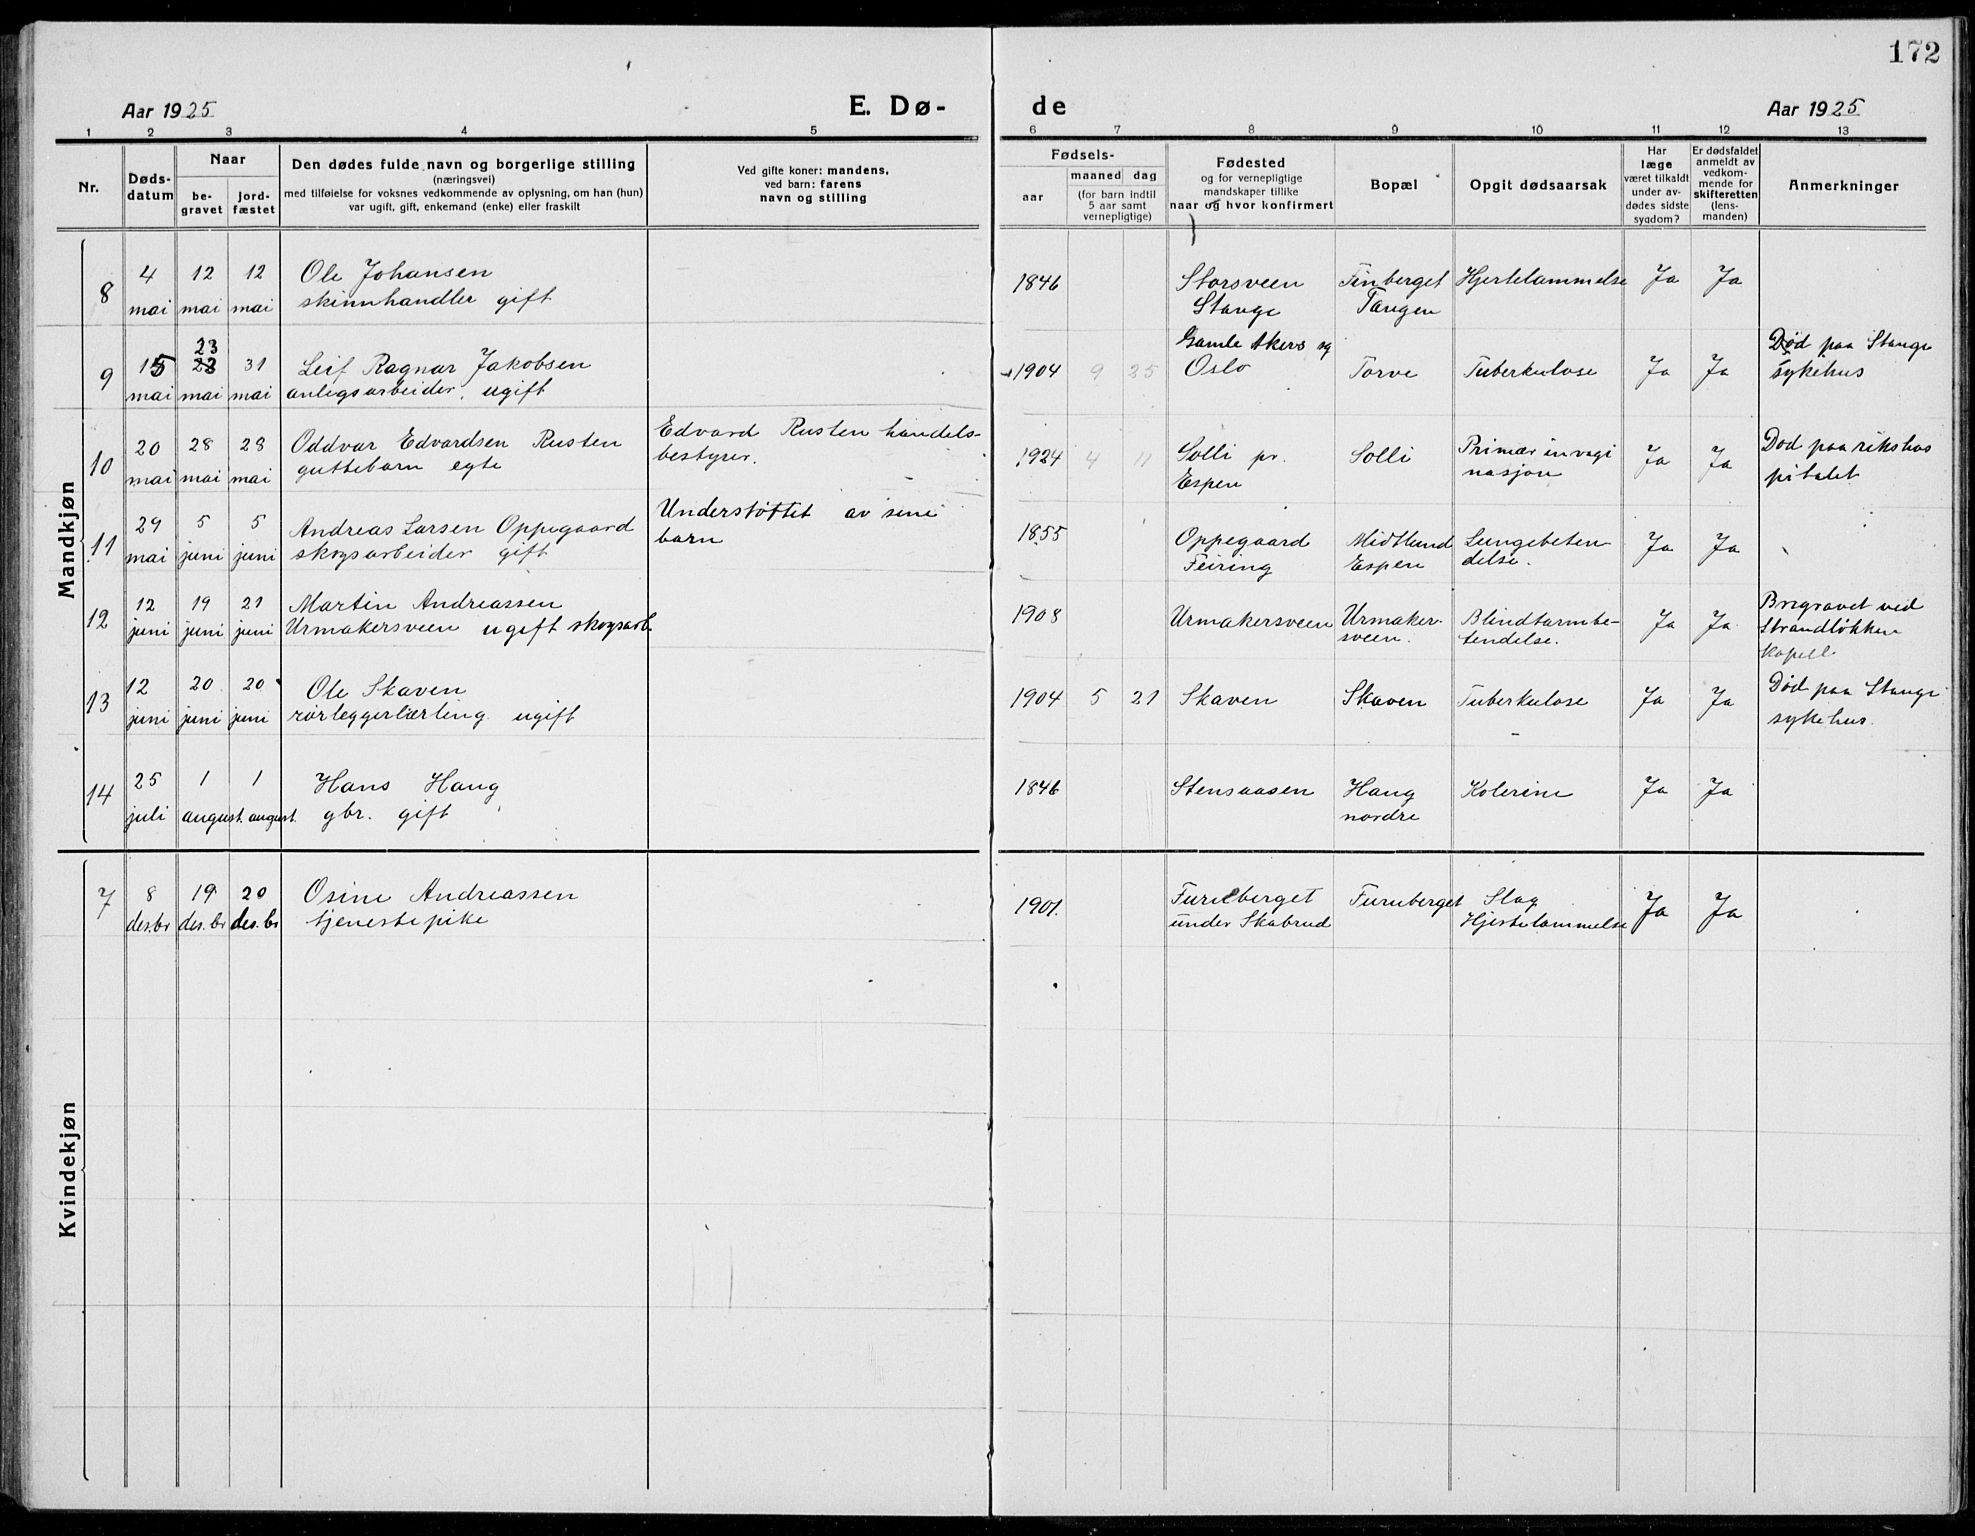 172
Aar 1925
E. Dø-
de
Aar 1925
1 2 3 4 5 6 7 8 9 10 11 12 13
Nr.
Døds-
datum
Naar
be-
gravet
jord-
fæstet
Den dødes fulde navn og borgerlige stilling
(næringsvei)
med tilføielse for voksnes vedkommende av oplysning, om han (hun)
var ugift, gift, enkemand (enke) eller fraskilt
Ved gifte koner: mandens,
ved barn: farens
navn og stilling
Fødsels-
aar
maaned dag
(for barn indtil
5 aar samt
vernepligtige)
Fødested
og for vernepligtige
mandskaper tillike
naar og hvor konfirmert
Bopæl
Opgit dødsaarsak
Har
læge
været tilkaldt
under av-
dødes sidste
sygdom?
Er dødsfaldet
anmeldt av
vedkom-
mende for
skifteretten
(lens-
manden)
Anmerkninger
Mandkjøn
8 4 12 12 Ole Johansen 1846 Storsveen Finberget Hjertelammelse Ja Ja
mai mai mai skinnhandler gift Stange Tangen
23 Gamle Akers sg Død paa Stange
9 15 23 31 Leif Ragnar Jakobsen 1904 9 25 Oslo Torve Tuberkulose Ja Ja sykehus
mai mai mai anlegsarbeider, ugift
10 20 28 28 Oddvar Edvardsen Rusten Edvard Rusten handels- 1924 4 11 Solli pr. Solli Primær invagi Ja Ja Død paa rikshos
mai mai mai guttebarn egte bestyrer. Espen nasjon pitalet
11 29 5 5 Andreas Larsen Oppegaard Understøttet av sine 1855 Oppegaard Midtlund Lungebeten- Ja Ja
mai juni juni skogsarbeider gift barn Feiring Espen delse.
12 12 19 21 Martin Andreassen 1908 Urmakersveen Urmaker- Blindtarmbe- Ja Ja Begravet ved
juni juni juni Urmakersveen ugift skogsarb. sveen. tendelse. Strandløkken
kapell
13 12 20 20 Ole Skaven 1904 5 21 Skaven Skaven Tuberkulose Ja Ja Død paa Stange
juni juni juni rørleggerlærling ugift sykehus.
14 25 1 1 Hans Haug 1846 Stensaasen Haug Kolerine Ja Ja
juli august. august. gbr. gift nordre
Kvindekjøn
7 8 19 20 Osine Andreassen 1901. Furuberget Furuberget Slag Ja Ja
des.br des.br des.br tjenestepike under Skabrud Hjertelammelse